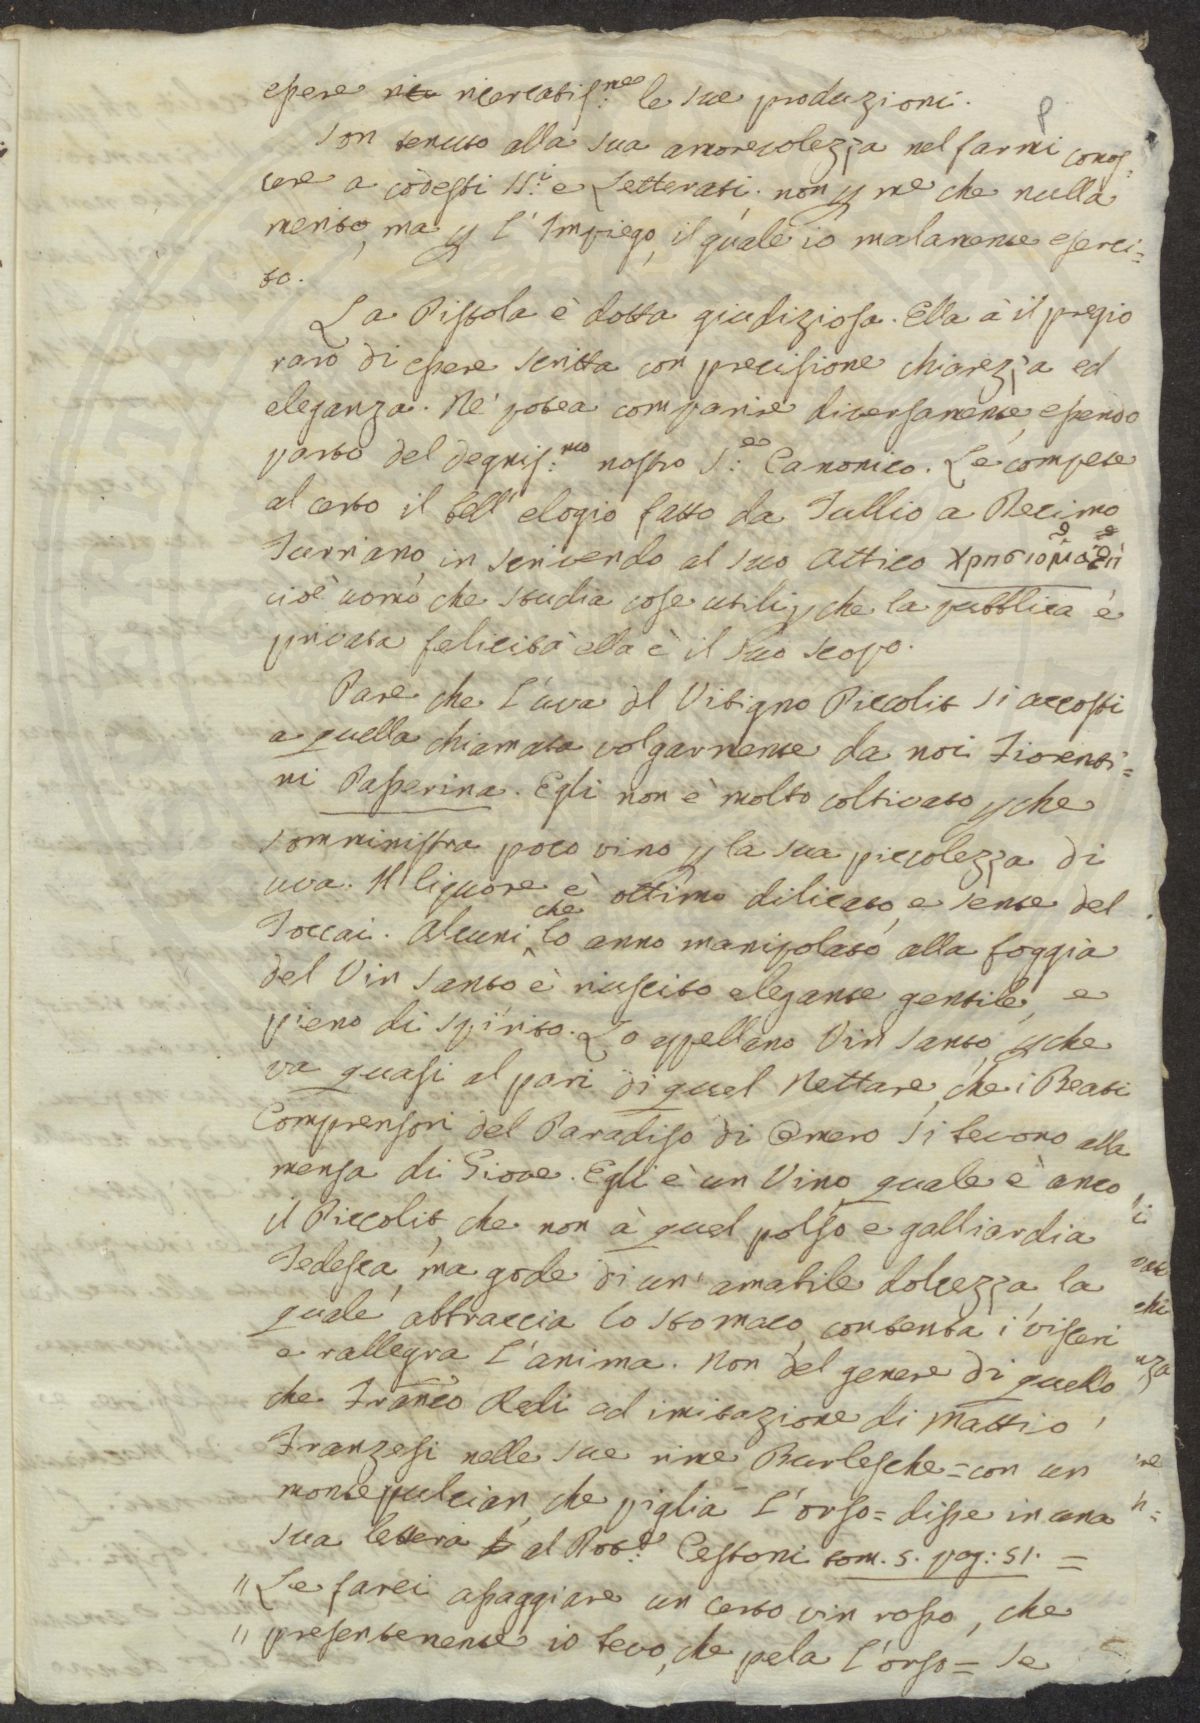 essere ric ricercatiss:me le sue produzioni.
Son tenuto alla sua amorevolezza nel farmi conos-
cere a codesti SS:i e Letterati. non p me che nulla
merito, ma p l'Impiego, il quale io malamente eserci=
to.
La Pistola è dotta giudiziosa. Ella à il pregio
raro di essere scritta con precisione chiarezza ed
eleganza. Nè potea comparire diversamente, essendo
parto del degnis:mo nostro S:e Canonico. Le compete
al certo il bell'elogio fatto da Tullio a Decimo
Turriano, in scrivendo al suo Attico χρησιομαθὴ
cioè uomo che studia cose utili, pche la pubblica e
privata felicità ella è il suo scopo.
Pare che l'uva del Vitigno Piccolit si accosti
a quella chiamata volgarmente da noi Fiorenti=
ni Passerina. Egli non è molto coltivato pche
somministra poco vino p la sua piccolezza di
uva. Il liquore è ottimo dilicato, e sente del
Toccai. Alcuni che lo anno manipolato alla foggia
del Vin Santo è riuscito elegante gentile, e
pieno di spirito. Lo appellano Vin Santo, pche
va quasi al pari di quel Nettare, che i Beati
Comprensori del Paradiso di Omero si bevono alla
mensa di Giove. Egli è un Vino, quale è anco
il Piccolit, che non à quel polso e galliardia
Tedesca, ma gode di un'amabile dolcezza la
quale abbraccia lo stomaco, contenta i visceri
e rallegra l'anima. Non del genere di quello
che Franco Redi ad imitazione di Mattio
Franzesi nelle sue rime Burlesche = con un
montepulcian, che piglia l'orso = disse in una
sua lettera al Dot:e Cestoni tom. 5. pag: 51. =
" Le farei assaggiare un certo vin rosso, che
" presentemente io bevo, che pela l'orso = Se